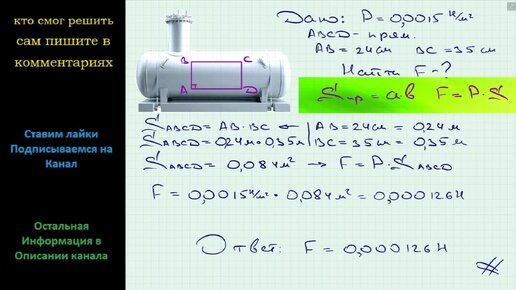 кто смог решить
сам пишите в
комментариях
Ставим лайки
Подписываемся на
Канал
Остальная
Информация в
Описании канала
B C
A D
Дано: P = 0,0015 Н/м²
ABCD - прям.
AB = 24 см BC = 35 см
Найти F = ?
Sпр = ab F = P · S
SABCD = AB · BC ← AB = 24 см = 0,24 м
SABCD = 0,24 м · 0,35 м BC = 35 см = 0,35 м
SABCD = 0,084 м² → F = P · SABCD
F = 0,0015 Н/м² · 0,084 м² = 0,000126 Н
Ответ: F = 0,000126 Н